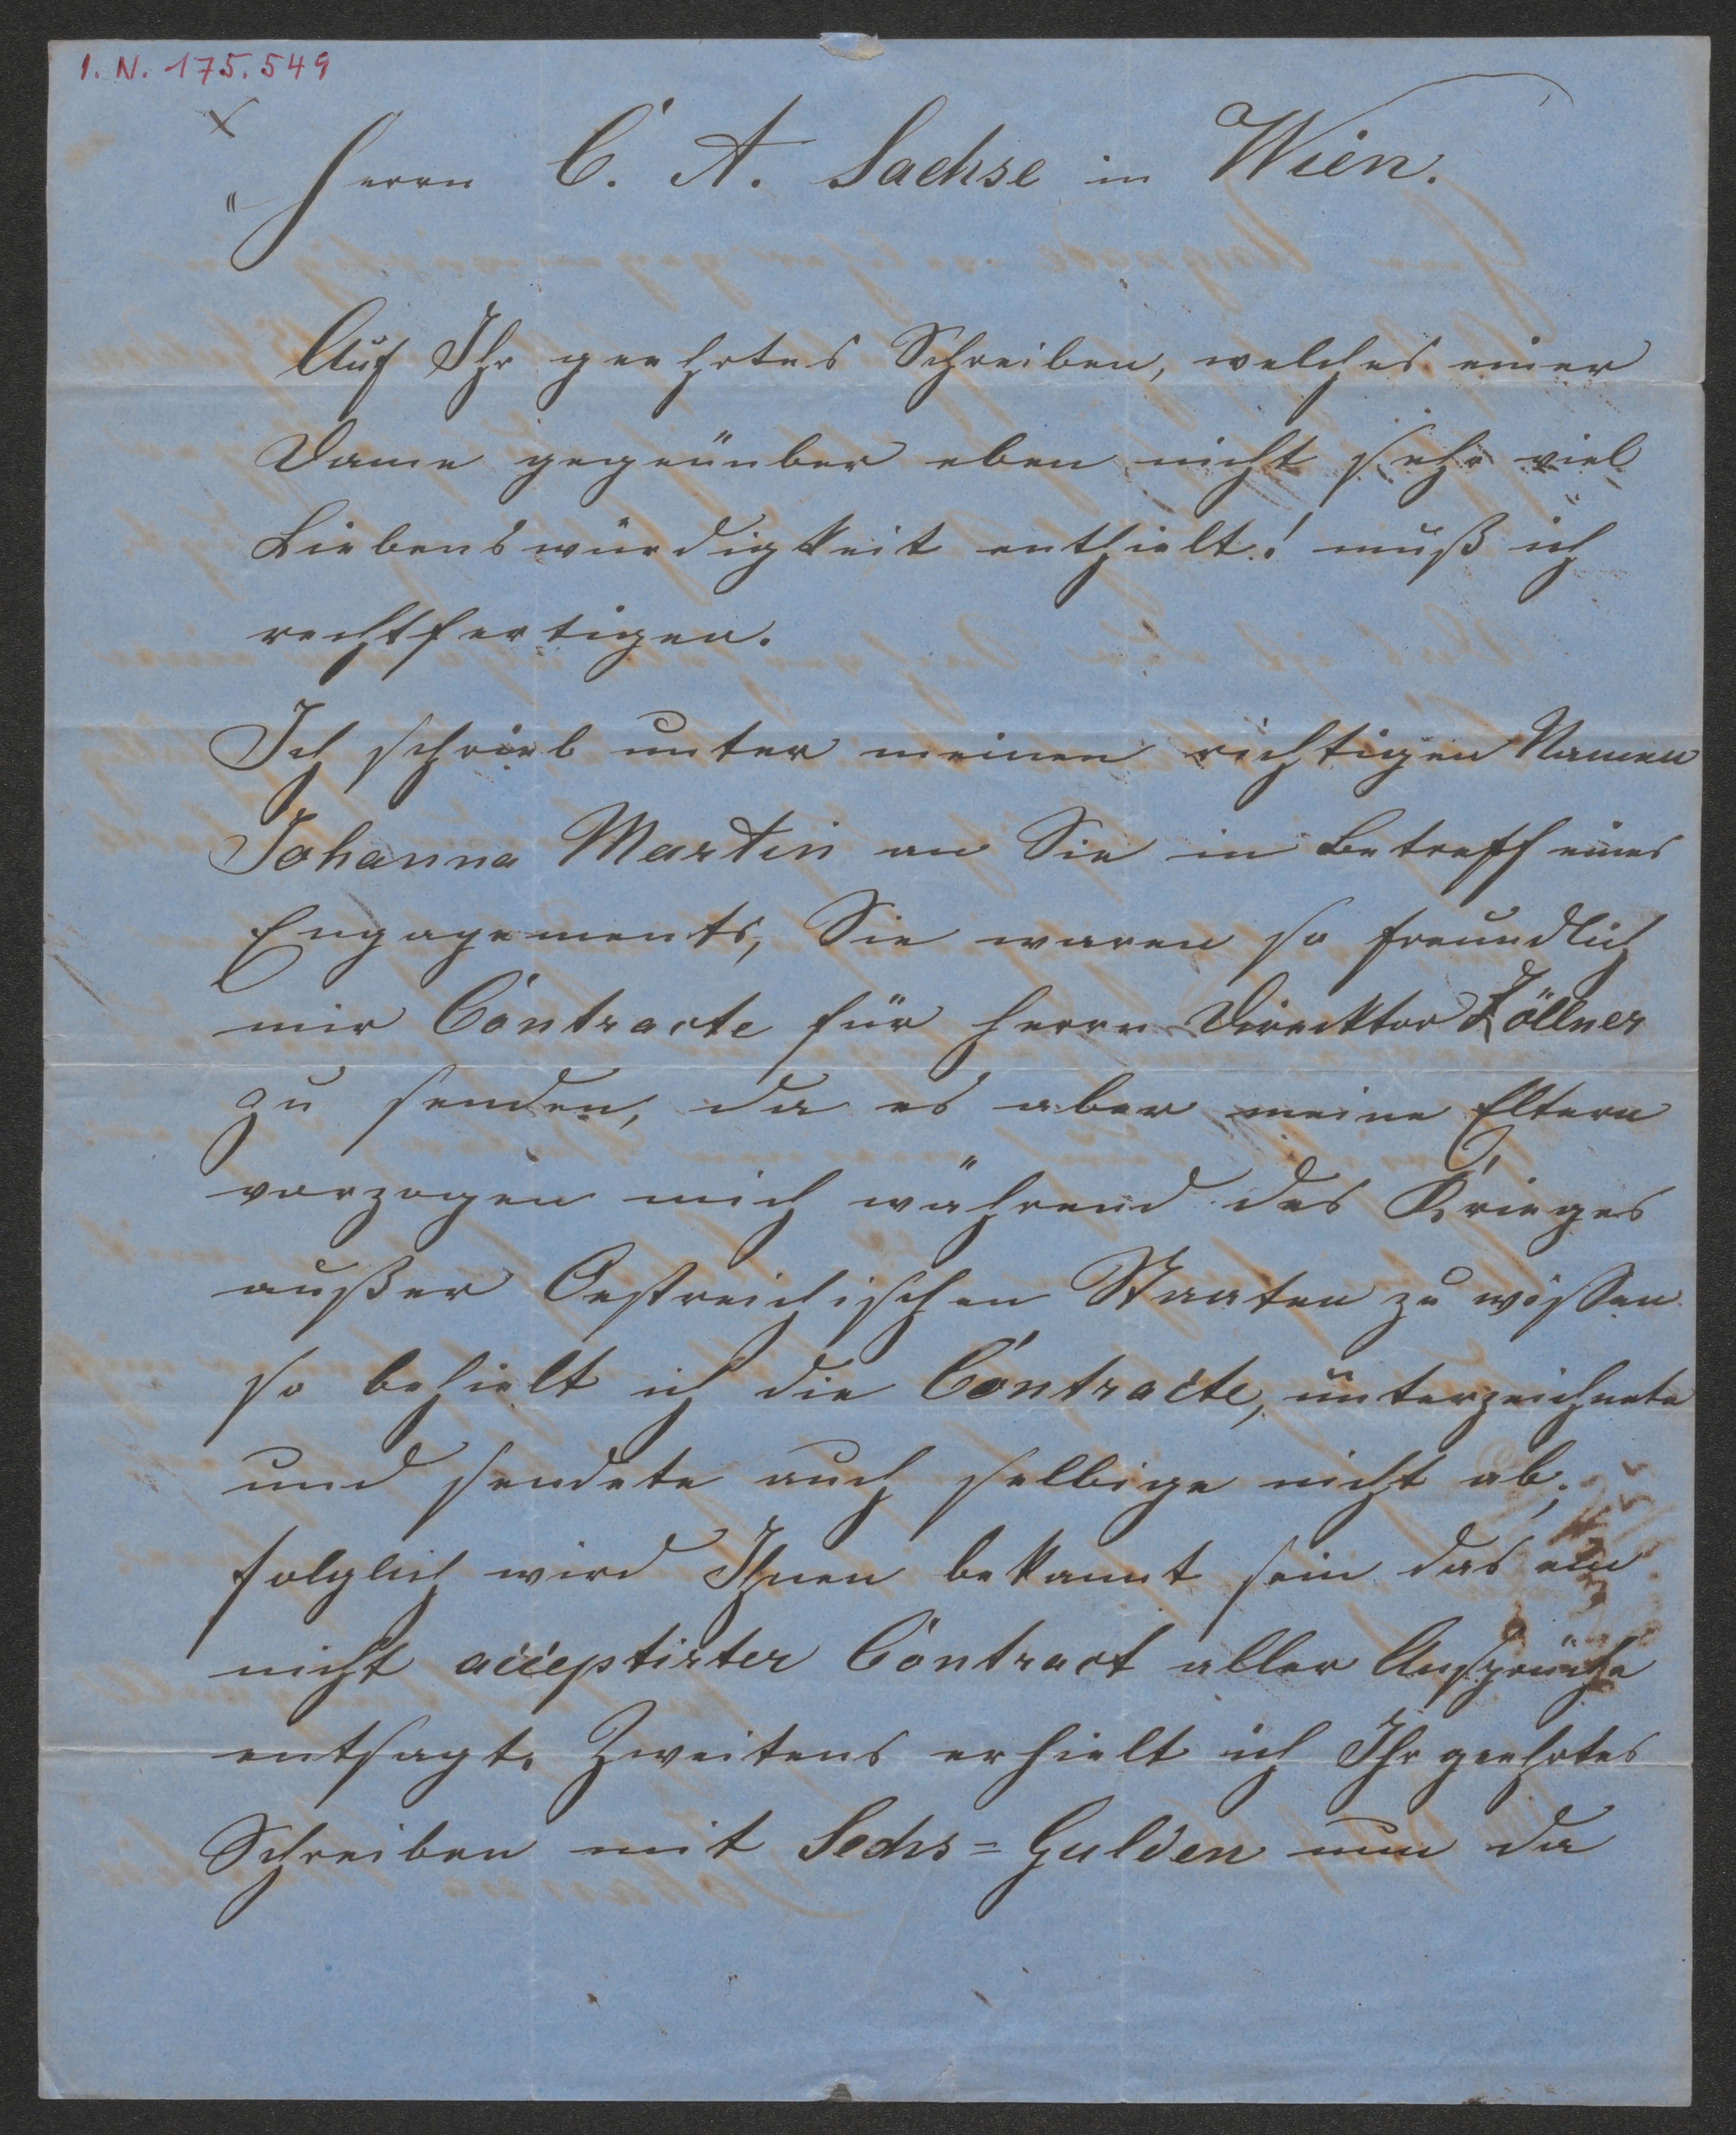 I. N. 175.549
Herrn C. A. Sachse in Wien.
Auf Ihr geehrtes Schreiben, welches einer
Dame gegenüber eben nicht sehr viel
Liebenswürdigkeit enthielt! muß ich
rechtfertigen.
Ich schrieb unter meinen richtigen Namen
Johanna Martin an Sie in Betreff eines
Engagements, Sie waren so freundlich
mir Contracte für Herrn Direktor Zöllner
zu senden, da es aber meine Eltern
vorzogen mich während des Krieges
außer Oestreichischen Staaten zu wissen
so behielt ich die Contracte, unterzeichnete
und sendete auch selbige nicht ab,
folglich wird Ihnen bekannt sein das ein
nicht acceptirter Contract aller Ansprüche
entsagt. Zweitens erhielt ich Ihr geehrtes
Schreiben mit Sechs=Gulden nun da